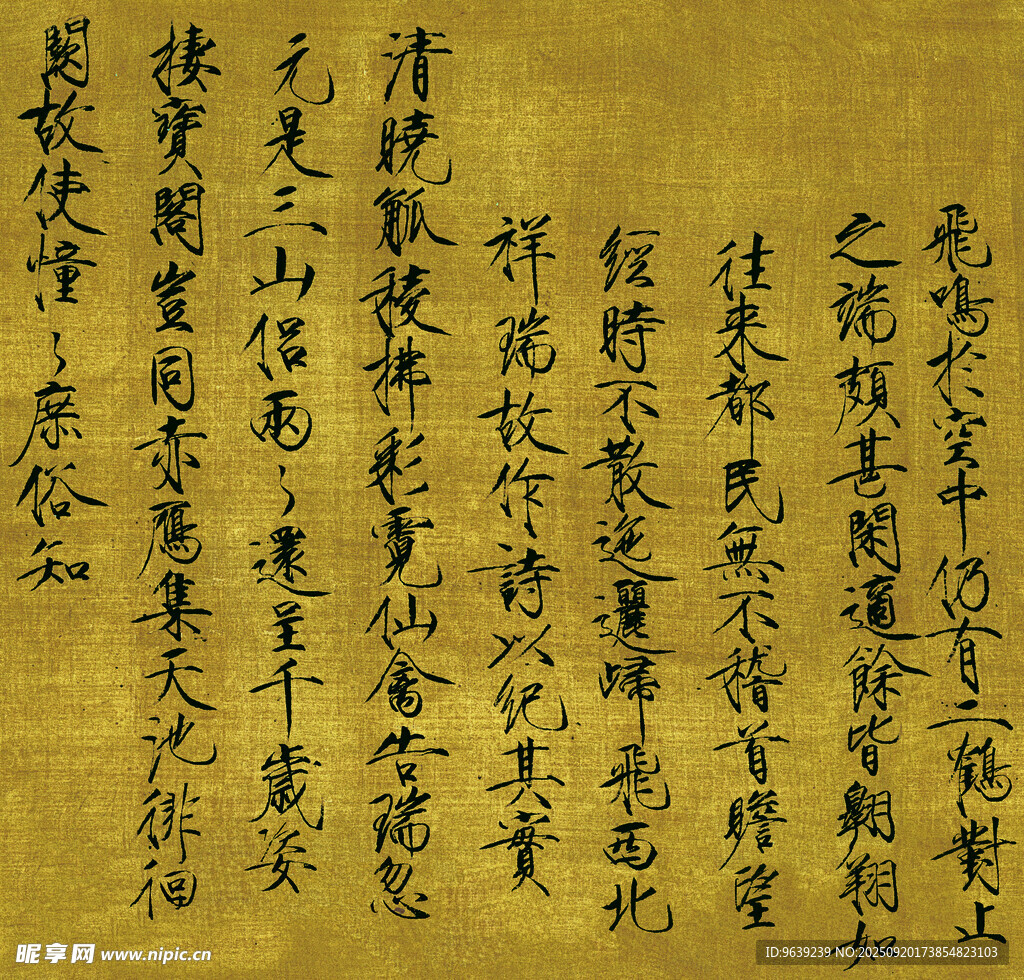 飛鳴於空中仍有二鶴對止
之端頗甚閑適餘皆翱翔如
往来都民無不稽首瞻望
經時不散迤邐歸飛西北
祥瑞故作詩以紀其實
清曉觚稜拂彩霓仙禽告瑞忽
元是三山侣兩〻還呈千歲姿
棲寶閣豈同赤鴈集天池徘徊
闕故使憧〻庶俗知
昵享网 www.nipic.cn
ID:9639239 NO:20250920173854823103